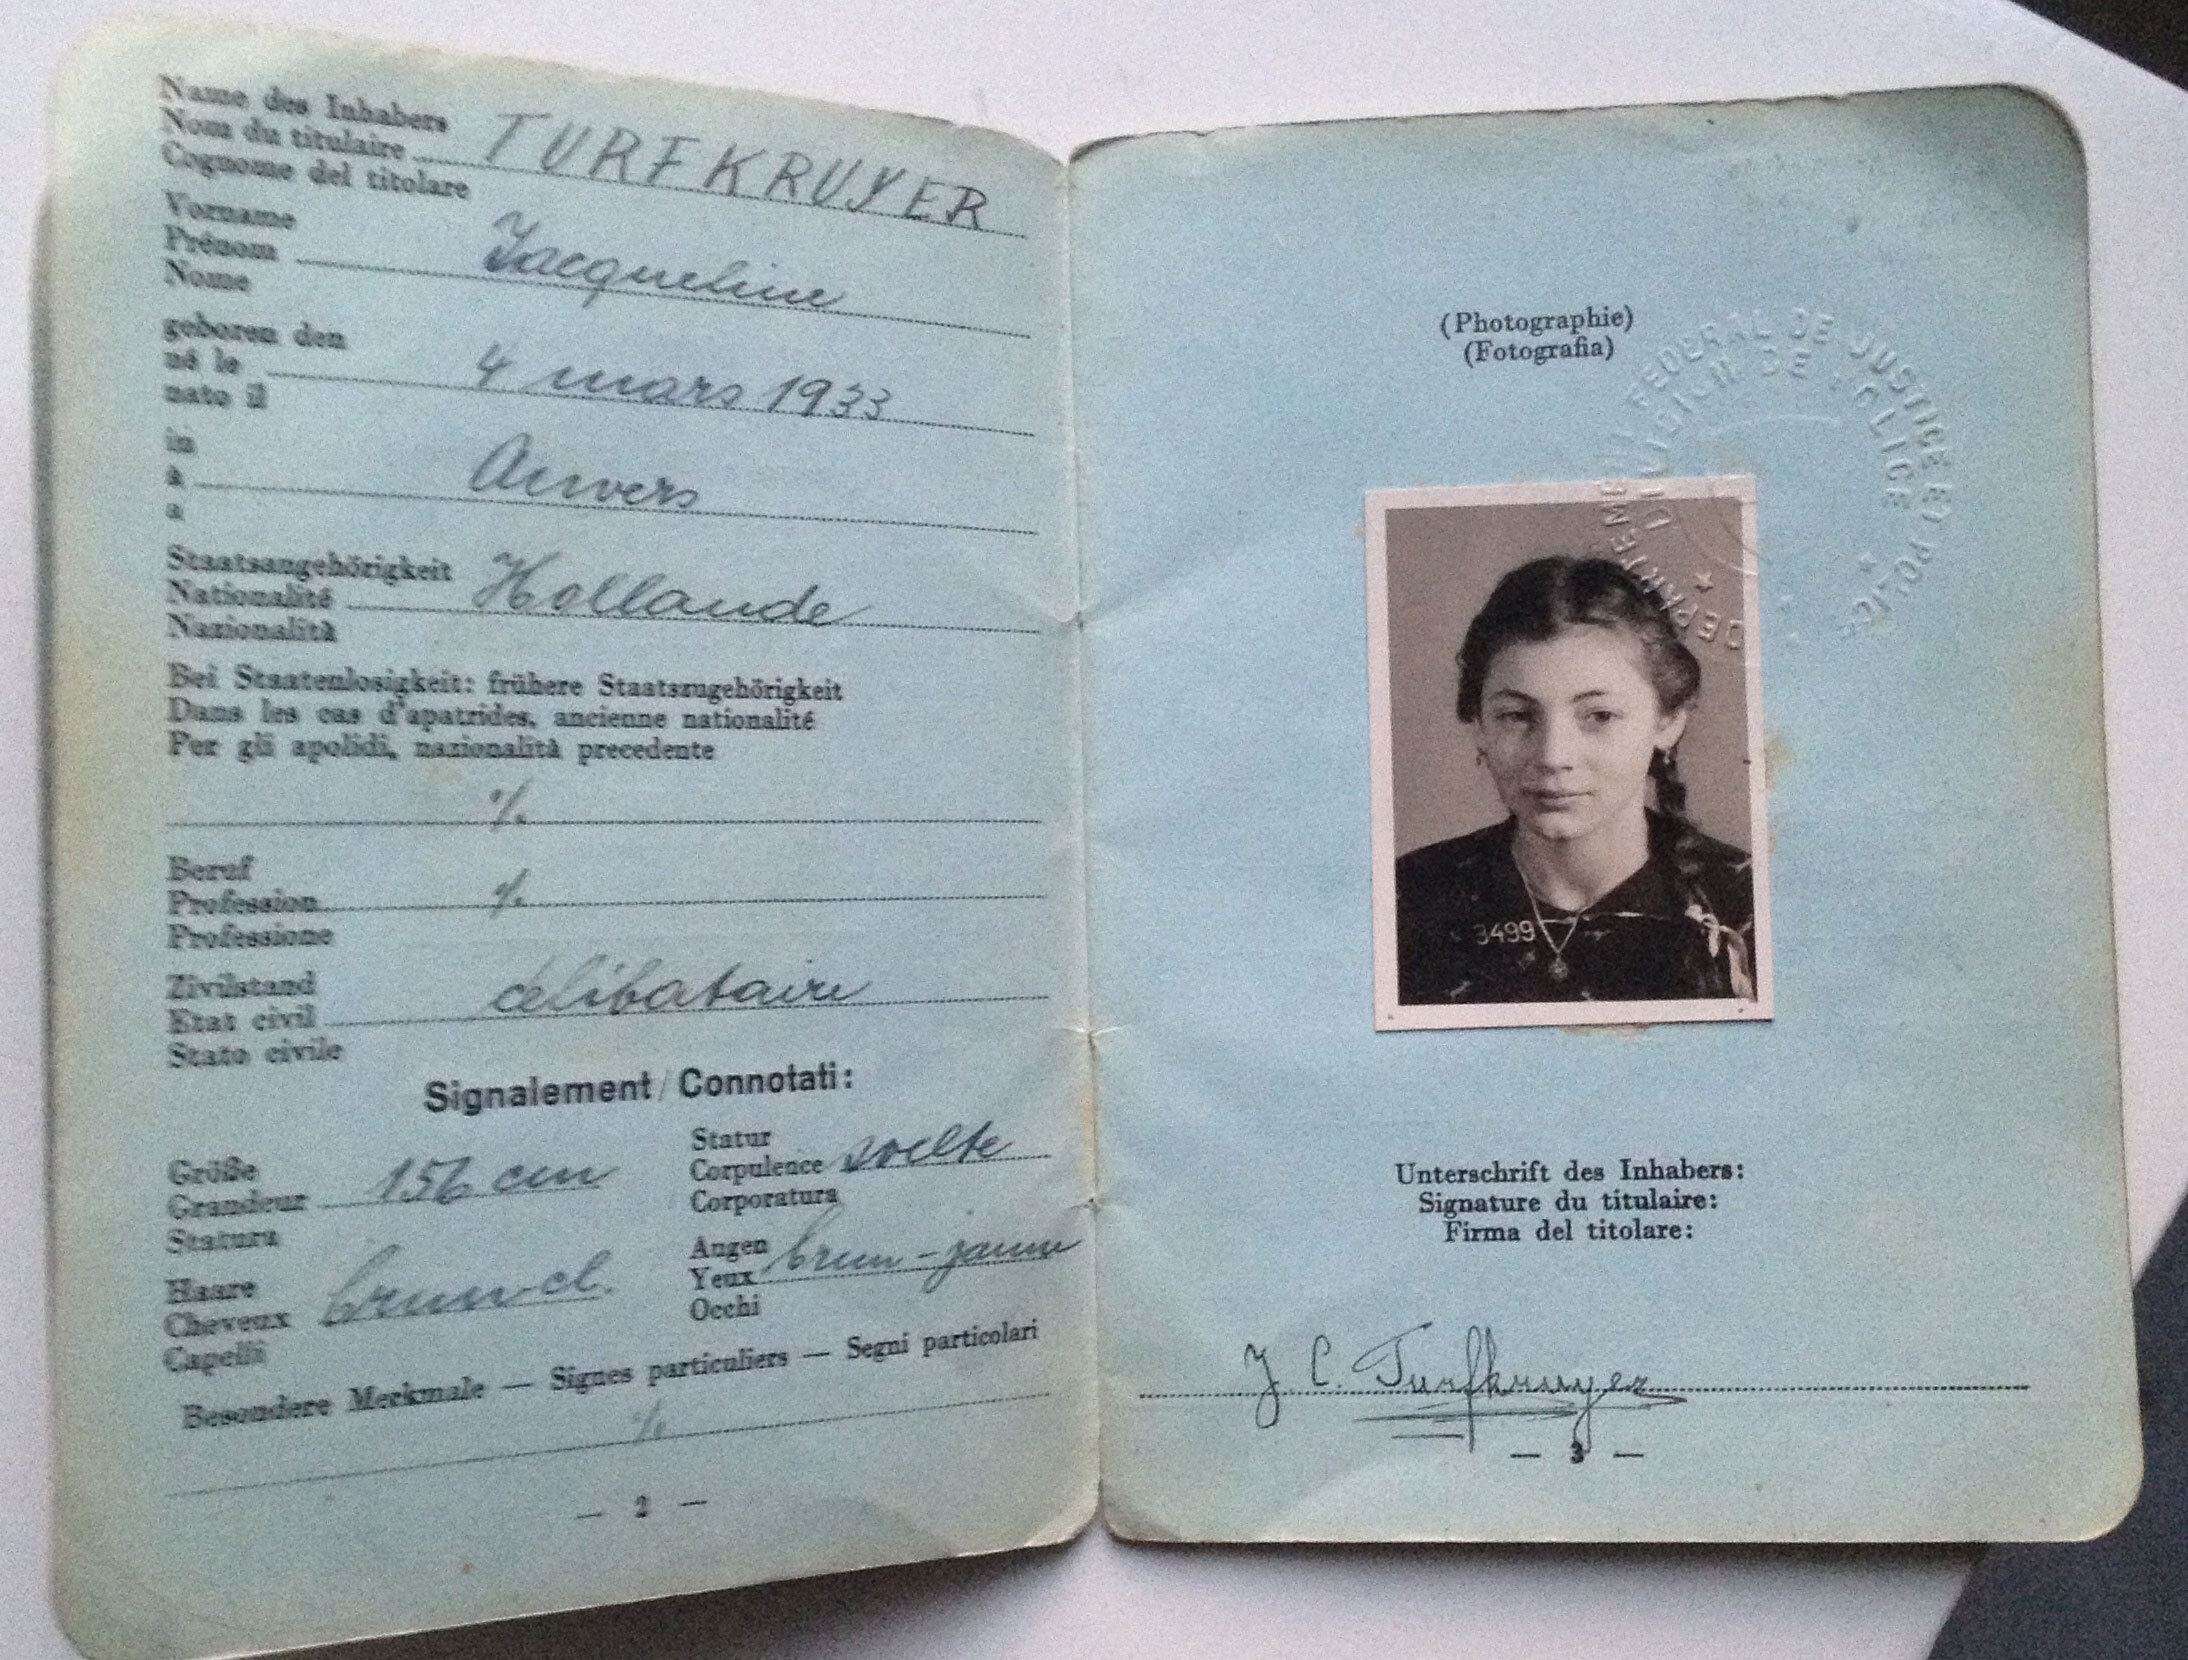 Name des Inhabers
Nom du titulaire TURFKRUYER
Cognome del titolare
Vorname
Prénom Jacqueline
Nome
geboren den
né le 4 mars 1933
nato il
in
à Anvers
a
Staatsangehörigkeit
Nationalité Hollande
Nazionalità
Bei Staatenlosigkeit: frühere Staatszugehörigkeit
Dans les cas d'apatrides, ancienne nationalité
Per gli apolidi, nazionalità precedente
·/.
Beruf
Profession ·/.
Professione
Zivilstand
Etat civil célibataire
Stato civile
Signalement / Connotati:
Größe
Grandeur 156 cm
Statura
Statur
Corpulence svelte
Corporatura
Haare
Cheveux brun cl.
Capelli
Augen
Yeux brun-jaune
Occhi
Besondere Merkmale — Signes particuliers — Segni particolari
·/.
— 2 —
(Photographie)
(Fotografia)
DEPARTEMENT FEDERAL DE JUSTICE ET POLICE
DIVISION DE POLICE
3499
Unterschrift des Inhabers:
Signature du titulaire:
Firma del titolare:
J. C. Turfkruyer
— 3 —